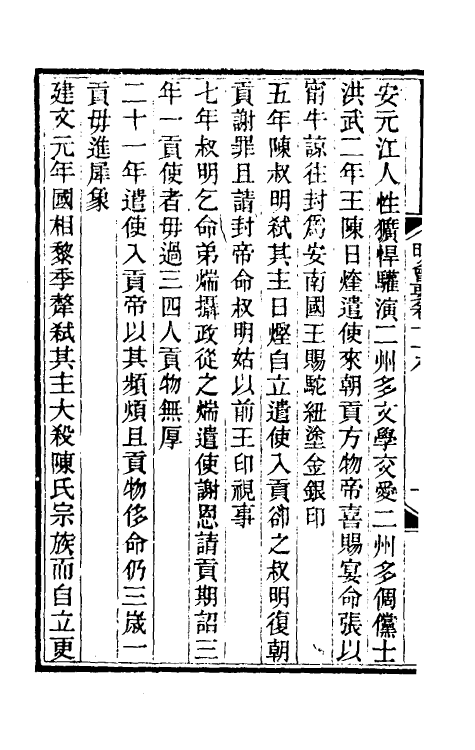 安元江人性獷悍驩演二州多文學交愛二州多倜儻士
洪武二年王陳日煃遣使來朝貢方物帝喜賜宴命張以
甯牛諒往封爲安南國王賜駝紐塗金銀印
五年陳叔明弑其主日熞自立遣使入貢卻之叔明復朝
貢謝罪且請封帝命叔明姑以前王印視事
七年叔明乞命弟煓攝政從之煓遣使謝恩請貢期詔三
年一貢使者毋過三四人貢物無厚
二十一年遣使入貢帝以其頻煩且貢物侈命仍三歲一
貢毋進犀象
建文元年國相黎季犛弑其主大殺陳氏宗族而自立更